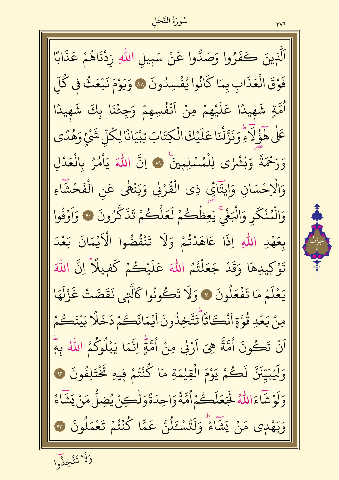 سُورَةُ النَّحْلِ
٢٧٦
اَلَّذِينَ كَفَرُوا وَصَدُّوا عَنْ سَبِيلِ اللّٰهِ زِدْنَاهُمْ عَذَابًا
فَوْقَ الْعَذَابِ بِمَا كَانُوا يُفْسِدُونَ ٨٨ وَيَوْمَ نَبْعَثُ فِي كُلِّ
اُمَّةٍ شَهِيدًا عَلَيْهِمْ مِنْ اَنْفُسِهِمْ وَجِئْنَا بِكَ شَهِيدًا
عَلٰى هٰٓؤُ۬لَٓاءِۜ وَنَزَّلْنَا عَلَيْكَ الْكِتَابَ تِبْيَانًا لِكُلِّ شَيْءٍ وَهُدًى
وَرَحْمَةً وَبُشْرٰى لِلْمُسْلِمِينَ ٨٩ اِنَّ اللّٰهَ يَأْمُرُ بِالْعَدْلِ
وَالْاِحْسَانِ وَاِيتَٓائِ ذِي الْقُرْبٰى وَيَنْهٰى عَنِ الْفَحْشَٓاءِ
وَالْمُنْكَرِ وَالْبَغْيِۚ يَعِظُكُمْ لَعَلَّكُمْ تَذَكَّرُونَ ٩٠ وَاَوْفُوا
بِعَهْدِ اللّٰهِ اِذَا عَاهَدْتُمْ وَلَا تَنْقُضُوا الْاَيْمَانَ بَعْدَ
تَوْكِيدِهَا وَقَدْ جَعَلْتُمُ اللّٰهَ عَلَيْكُمْ كَفِيلًاۜ اِنَّ اللّٰهَ
يَعْلَمُ مَا تَفْعَلُونَ ٩١ وَلَا تَكُونُوا كَالَّتِي نَقَضَتْ غَزْلَهَا
مِنْ بَعْدِ قُوَّةٍ اَنْكَاثًاۜ تَتَّخِذُونَ اَيْمَانَكُمْ دَخَلًا بَيْنَكُمْ
اَنْ تَكُونَ اُمَّةٌ هِيَ اَرْبٰى مِنْ اُمَّةٍۜ اِنَّمَا يَبْلُوكُمُ اللّٰهُ بِهِۜ
وَلَيُبَيِّنَنَّ لَكُمْ يَوْمَ الْقِيٰمَةِ مَا كُنْتُمْ فِيهِ تَخْتَلِفُونَ ٩٢
وَلَوْ شَٓاءَ اللّٰهُ لَجَعَلَكُمْ اُمَّةً وَاحِدَةً وَلٰكِنْ يُضِلُّ مَنْ يَشَٓاءُ
وَيَهْدِي مَنْ يَشَٓاءُۜ وَلَتُسْـَٔلُنَّ عَمَّا كُنْتُمْ تَعْمَلُونَ ٩٣
وَلَا تَتَّخِذُوا